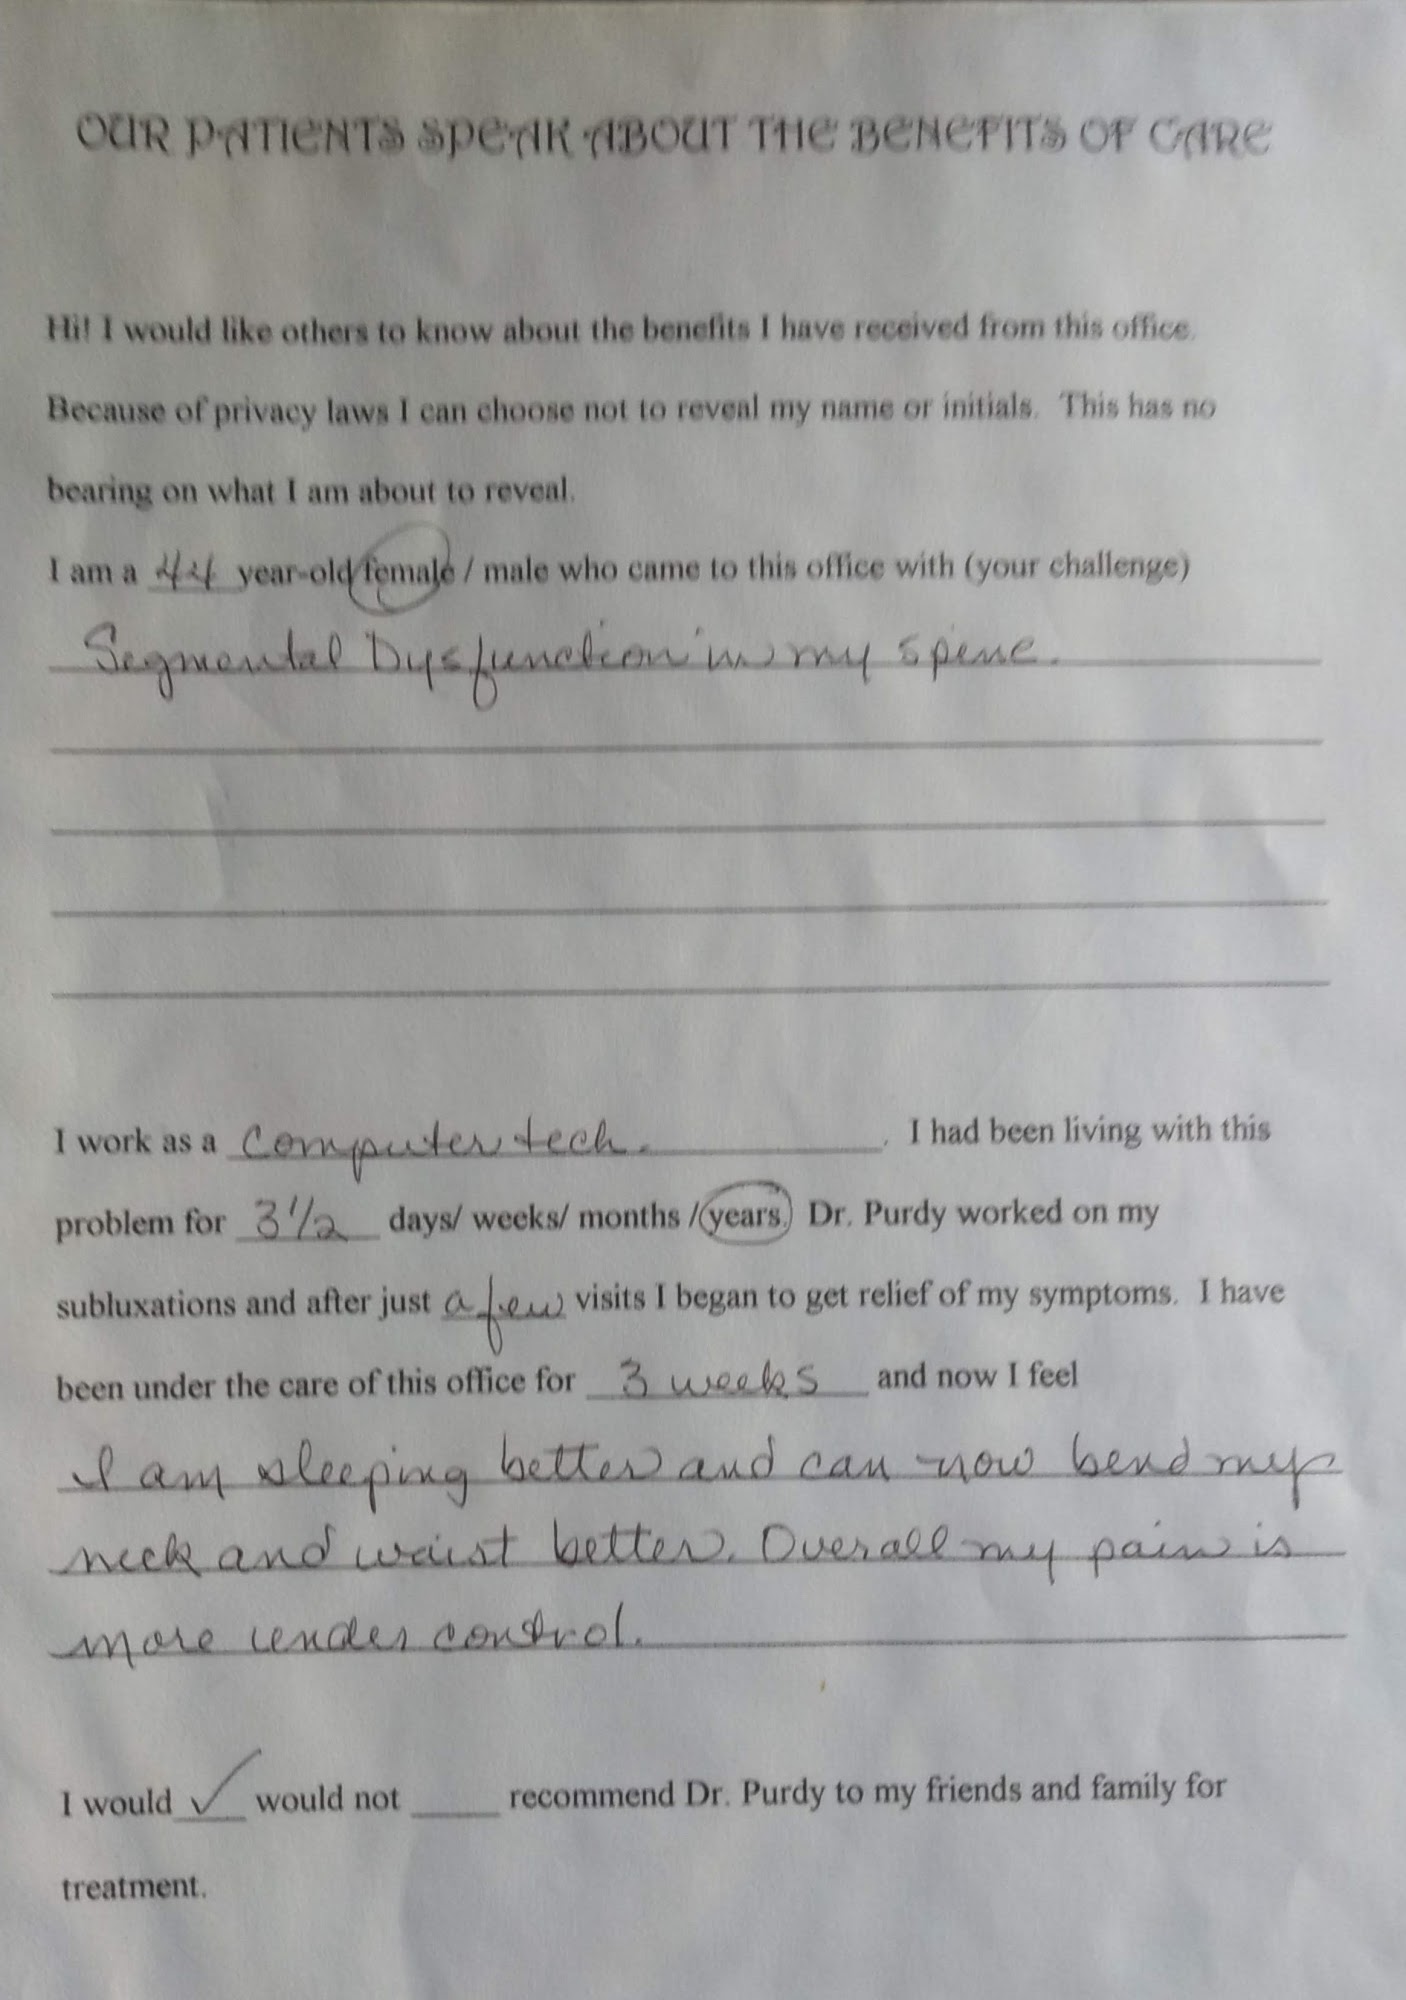 OUR PATIENTS SPEAK ABOUT THE BENEFITS OF CARE
Hi! I would like others to know about the benefits I have received from this office.
Because of privacy laws I can choose not to reveal my name or initials. This has no
bearing on what I am about to reveal.
I am a 44 year-old female / male who came to this office with (your challenge)
Segmental Dysfunction in my spine.
I work as a computer tech. . I had been living with this
problem for 3 1/2 days/ weeks/ months / years. Dr. Purdy worked on my
subluxations and after just a few visits I began to get relief of my symptoms. I have
been under the care of this office for 3 weeks and now I feel
I am sleeping better and can now bend my
neck and waist better. Overall my pain is
more under control.
I would ✓ would not ____ recommend Dr. Purdy to my friends and family for
treatment.